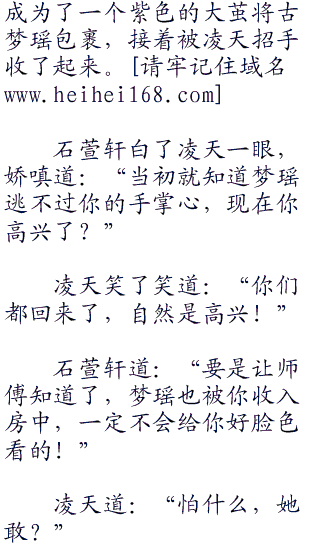 成为了一个紫色的大茧将古
梦瑶包裹，接着被凌天招手
收了起来。[请牢记住域名
www.heihei168.com]
石萱轩白了凌天一眼，
娇嗔道：“当初就知道梦瑶
逃不过你的手掌心，现在你
高兴了？”
凌天笑了笑道：“你们
都回来了，自然是高兴！”
石萱轩道：“要是让师
傅知道了，梦瑶也被你收入
房中，一定不会给你好脸色
看的！”
凌天道：“怕什么，她
敢？”